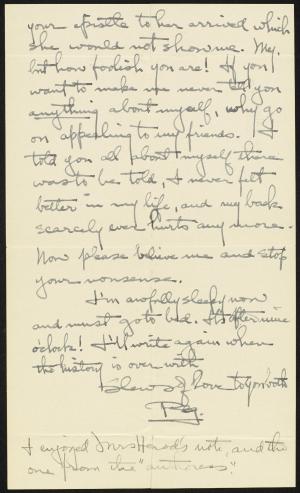 your epistle to her arrived which
she would not show me. My,
but how foolish you are! If you
want to make me never tell you
anything about myself, why go
on appealing to my friends. I
told you all about myself there
was to be told, I never felt
better in my life, and my back
scarcely ever hurts any more.
Now please believe me and stop
your nonsense.
I'm awfully sleepy now
and must go to bed. It's after nine
o'clock! I'll write again when
the history is over with
Slews of love to you both
Peg.
I enjoyed Mrs Herod's note, and the
one from the "authoress".